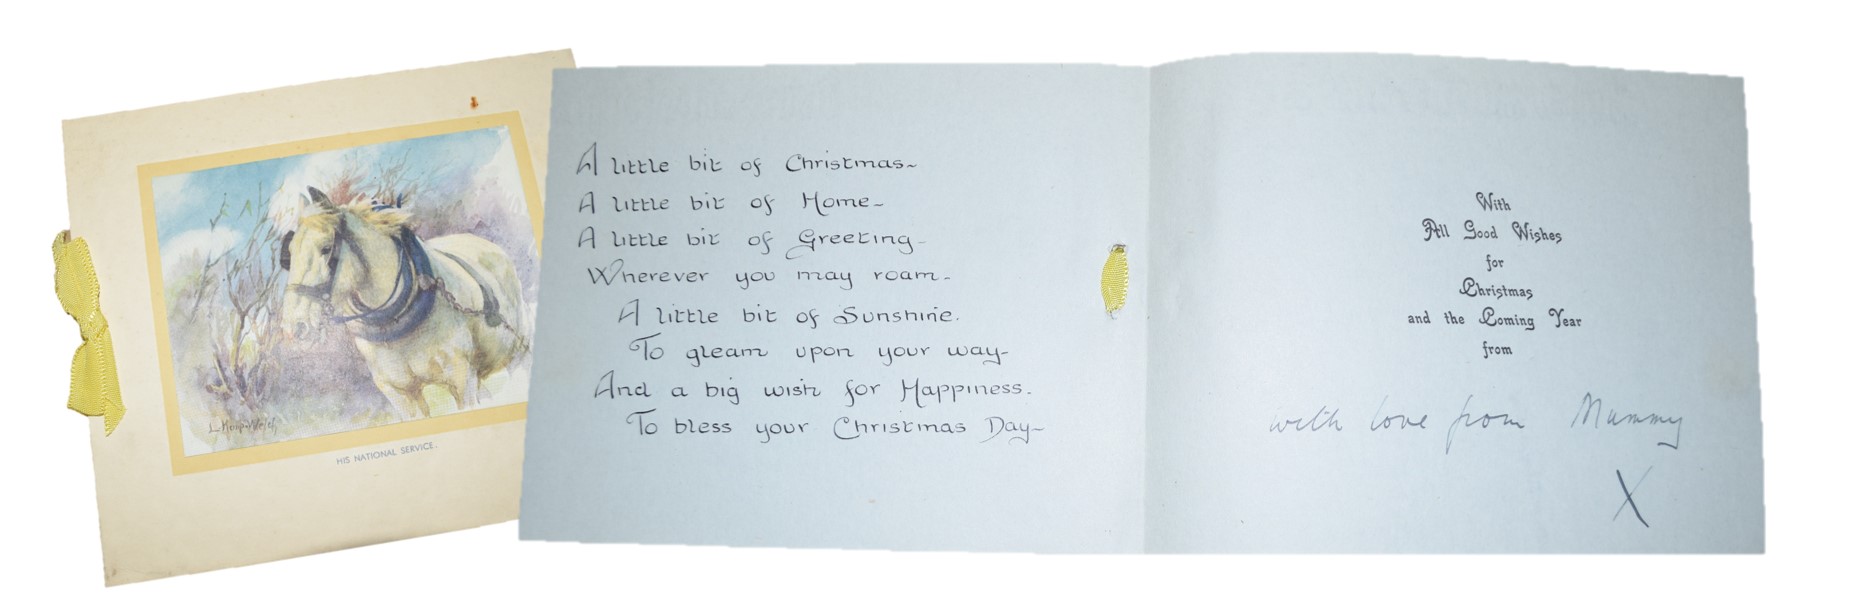 L Kemp-Welch
HIS NATIONAL SERVICE.
A little bit of Christmas~
A little bit of Home~
A little bit of Greeting-
Wherever you may roam-
A little bit of Sunshine.
To gleam upon your way-
And a big wish for Happiness.
To bless your Christmas Day~
With
All Good Wishes
for
Christmas
and the Coming Year
from
with love from Mummy
X